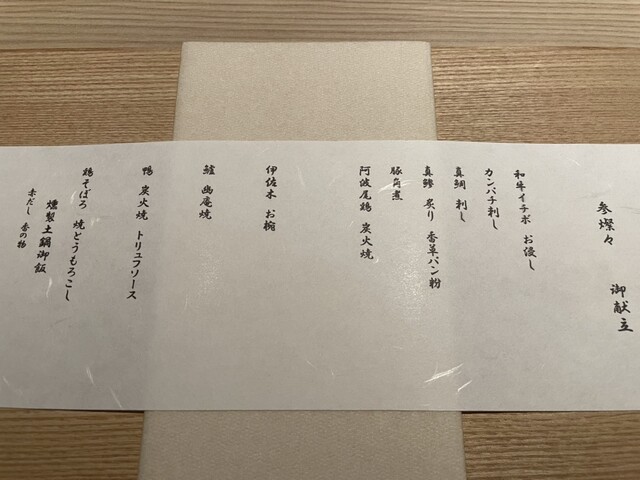 参燦々 御献立
和牛イチボ お浸し
カンパチ刺し
真鯛 刺し
真鯵 炙り 香草パン粉
豚角煮
阿波尾鶏 炭火焼
伊佐木 お椀
鱸 幽庵焼
鴨 炭火焼 トリュフソース
鶏そぼろ 焼とうもろこし
燻製土鍋御飯
赤だし 香の物